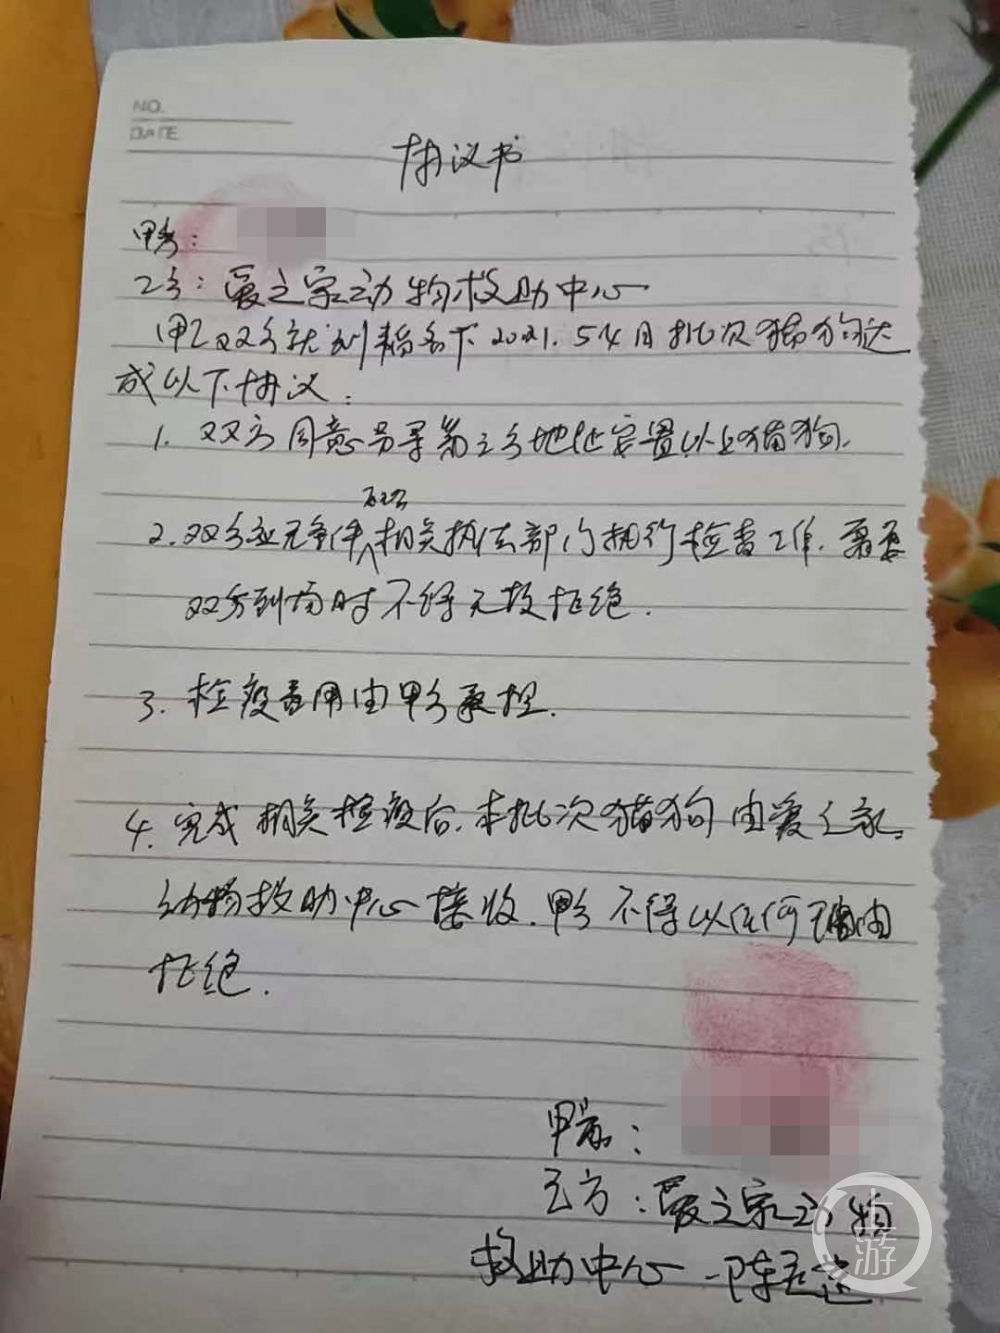 NO.
DATE
协议书
甲方:
乙方:爱之家动物救助中心
甲乙双方就 名下2021.5 月批次猫狗达
成以下协议:
1. 双方同意另寻第三方地址安置以上猫狗.
2.双方应无条件 配合 相关执法部门执行检查工作.需要
双方到场时不得无故拒绝.
3. 检疫费用由甲方承担.
4. 完成相关检疫后.本批次猫狗由爱之家
动物救助中心接收.甲方不得以任何理由
拒绝.
甲方:
乙方:爱之家动物
救助中心 陈
上游